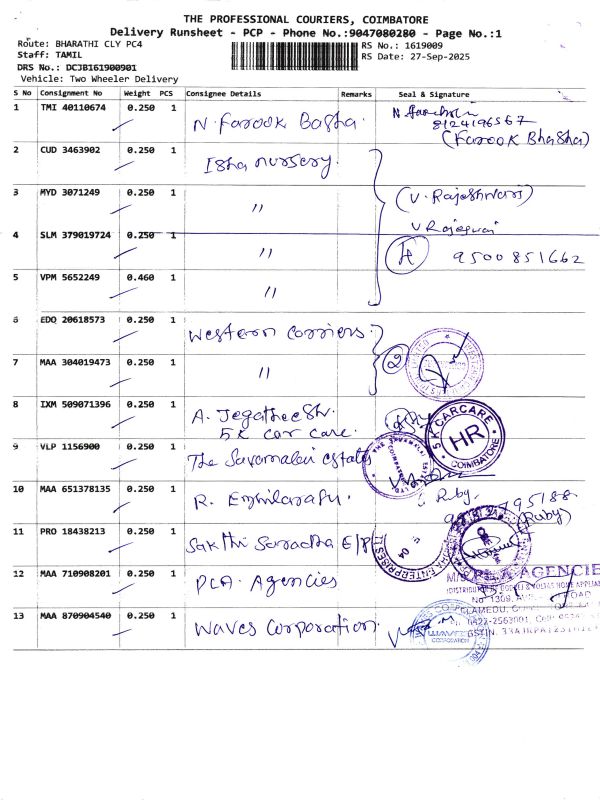 THE PROFESSIONAL COURIERS, COIMBATORE
Delivery Runsheet - PCP - Phone No.:9047080280 - Page No.:1
Route: BHARATHI CLY PC4
RS No.: 1619009
Staff: TAMIL
RS Date: 27-Sep-2025
DRS No.: DCJB161900901
Vehicle: Two Wheeler Delivery
S No Consignment No Weight PCS Consignee Details Remarks Seal & Signature
1 TMI 40110674 0.250 1 N. Farook Basha.
8124196567
(Farook Bhasha)
2 CUD 3463902 0.250 1 Isha nursery.
3 MYD 3071249 0.250 1 " (V. Rajeshwari)
4 SLM 379019724 0.250 1 " 9500851662
5 VPM 5652249 0.460 1 "
6 EDQ 20618573 0.250 1 Western corriers.
7 MAA 304019473 0.250 1 " 2
8 IXM 509071396 0.250 1 A. Jegatheesh.
5K car care.
5K CARCARE
HR
COIMBATORE
9 VLP 1156900 0.250 1 The Savamalai estates
10 MAA 651378135 0.250 1 R. Ezhilarasu. Ruby.
(Ruby)
11 PRO 18438213 0.250 1 Sakthi Saradha E/P
12 MAA 710908201 0.250 1 PLA. Agencies
M/S P.L.A. AGENCIE
13 MAA 870904540 0.250 1 Waves Corporation.
WAVES
CORPORATION